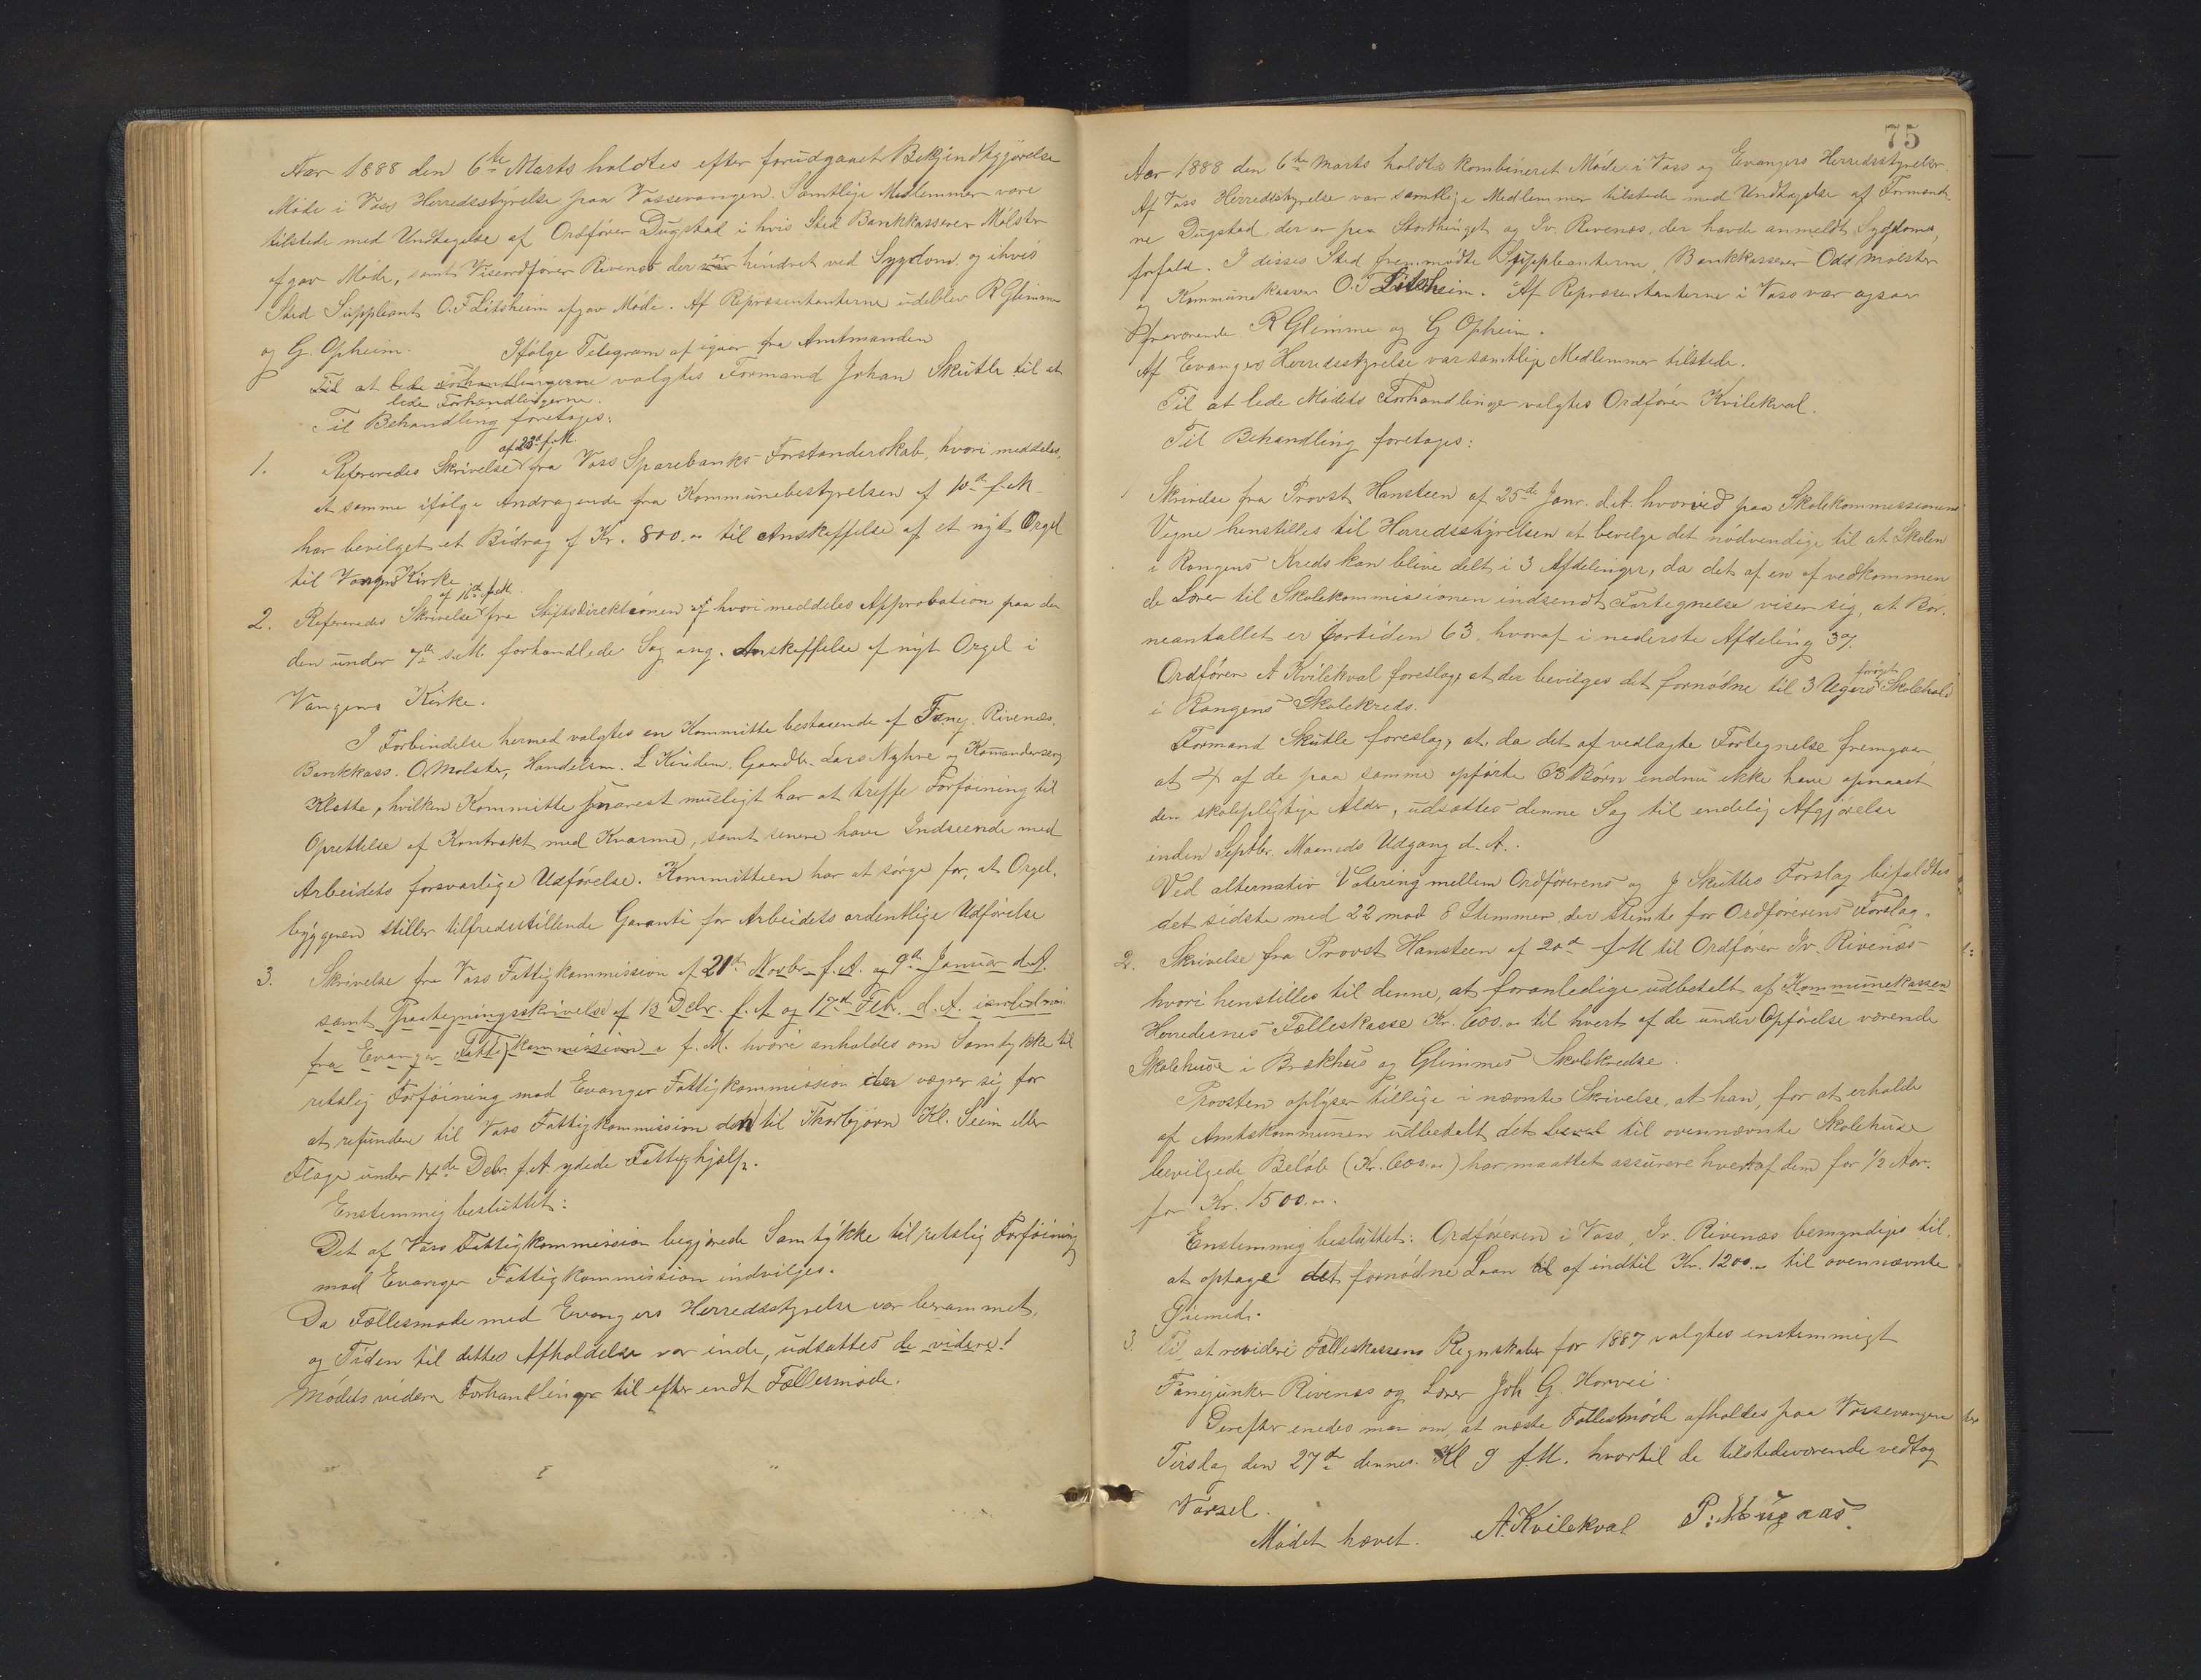 Aar 1888 den 6te Marts holdtes efter forudgaaet Bekjendtgjørelse
Møde i Voss Herredsstyrelse paa Vossevangen. Samtlige Medlemmer vare
tilstede med Undtagelse af Ordfører Dugstad i hvis Sted Bankkasserer Mølster
afgav Møde, samt Viseordfører Rivenæs der er hindret ved Sygdom og i hvis
Sted Suppleant O. T. Litsheim afgav Møde. Af Repræsentanterne udeblev R Glimme
og G. Opheim. Ifølge Telegram af igaar fra Amtmanden
Til at lede Forhandlingerne valgtes Formand Johan Skutle til at
lede Forhandlingerne.
Til Behandling foretages:
af 23d f. M.
1. Refereredes Skrivelse fra Voss Sparebanks Forstanderskab, hvori meddeles,
at samme ifølge Andragende fra Kommunebestyrelsen af 10de f. M.
har bevilget et Bidrag af Kr. 800.00 til Anskaffelse af et nyt Orgel
til Vangens Kirke
af 16de f. M.
2. Refereredes Skrivelse fra Stiftsdirektionen af hvori meddeles Approbation paa den
den under 7de s. M. forhandlede Sag ang. Anskaffelse af nyt Orgel i
Vangens Kirke.
I Forbindelse hermed valgtes en Kommitte bestaaende af Fanej. Rivenæs,
Bankkass. O Mølster, Handelsm. L Kindem, Gaardbr. Lars Nyhre og Kommanderserg
Kløtte, hvilken Kommitte snarest muligt har at træffe Forføining til
Oprettelse af Kontrakt med Kvarme, samt senere have Indseende med
Arbeidets forsvarlige Udførelse. Kommitteen har at sørge for, at Orgel-
byggeren stiller tilfredsstillende Garanti for Arbeidets ordentlige Udførelse
3. Skrivelse fra Voss Fattigkommission af 21de Novbr. f. A. og 9de Januar d. A.
samt Paategningsskrivelse af 13 Debr. f. A og 17de Febr. d. A.
fra Evanger Fattigkommission f. M. hvori anholdes om Samtykke til
retslig Forføining mod Evanger Fattigkommission der vægrer sig for
at refundere til Voss Fattigkommission den til Thorbjørn Kl. Seim eller
Flage under 14de Debr. f. A. ydede Fattighjælp.
Enstemmig besluttet:
Det af Voss Fattigkommission begjærede Samtykke til retslig Forføining
mod Evanger Fattigkommission indvilges.
Da Fællesmøde med Evangers Herredsstyrelse var berammet,
og Tiden til dettes Afholdelse var inde, udsattes de videre
Mødets videre Forhandlinger til efter endt Fællesmøde.
75
Aar 1888 den 6te Marts holdtes kombineret Møde i Voss og Evangers Herredsstyrelser.
Af Voss Herredsstyrelse var samtlige Medlemmer tilstede med Undtagelse af Formænde-
ne Dugstad, der er paa Storthinget og Iv. Rivenæs, der havde anmeldt Sygdoms
forfald. I disses Sted fremmødte Suppleanterne, Bankkasserer Odd Mølster
og Kommunekasserer O. T Litsheim. Af Repræsentanterne i Voss var ogsaa
fraværende R Glimme og G Opheim.
Af Evangers Herredsstyrelse var samtlige Medlemmer tilstede.
Til at lede Mødets Forhandlinger valgtes Ordfører Kvilekval.
Til Behandling foretages:
1 Skrivelse fra Provst Hansteen af 25de Janr. d. A. hvorved paa Skolekommissionens
Vegne henstilles til Herredsstyrelsen at bevilge det nødvendige til at Skolen
i Rongens Kreds kan blive delt i 3 Afdelinger, da det af en af vedkommen
de Lærer til Skolekommissionen indsendt Fortegnelse viser sig, at Bør-
neantallet er fortiden 63, hvoraf i nederste Afdeling 37.
Ordfører A Kvilekval foreslog, at der bevilges det fornødne til 3 Ugers forøget Skolehold
i Rongens Skolekreds.
Formand Skutle foreslog, at, da det af vedlagte Fortegnelse fremgaar
at 4 af de paa samme opførte 63 Børn endnu ikke have opnaaet
den skolepligtige Alder, udsættes denne Sag til endelig Afgjørelse
inden Septbr. Maaneds Udgang d. A.
Ved alternativ Votering mellem Ordførerens og J Skutles Forslag bifaldtes
det sidste med 22 mod 8 Stemmer, der stemte for Ordførerens Forslag.
2. Skrivelse fra Provst Hansteen af 20de f M til Ordfører Iv. Rivenæs
hvori henstilles til denne, at foranledige udbetalt af Kommunekassen
Herredernes Fælleskasse Kr. 600.00 til hvert af de under Opførelse værende
Skolehuse i Brækhus og Glimmes Skolekredse.
Provsten oplyser tillige i nævnte Skrivelse, at han, for at erholde
af Amtskommunen udbetalt det til ovennævnte Skolehuse
bevilgede Beløb (Kr. 600.00) har maattet assurere hvert af dem for 1/2 Aar.
for Kr. 1500.00.
Enstemmig besluttet: Ordføreren i Voss, Iv. Rivenæs bemyndiges til,
at optage det fornødne Laan til af indtil Kr. 1200.00 til ovennævnte
Øiemed.
3. Til at revidere Fælleskassens Regnskaber for 1887 valgtes enstemmigt
Fanejunker Rivenæs og Lærer Joh. G. Horvei.
Derefter enedes man om, at næste Fællesmøde afholdes paa Vossevangen
Tirsdag den 27de dennes Kl 9 f. M. hvortil de tilstedeværende vedtog
Varsel.
Mødet hævet. A. Kvilekval P: Mugaas.